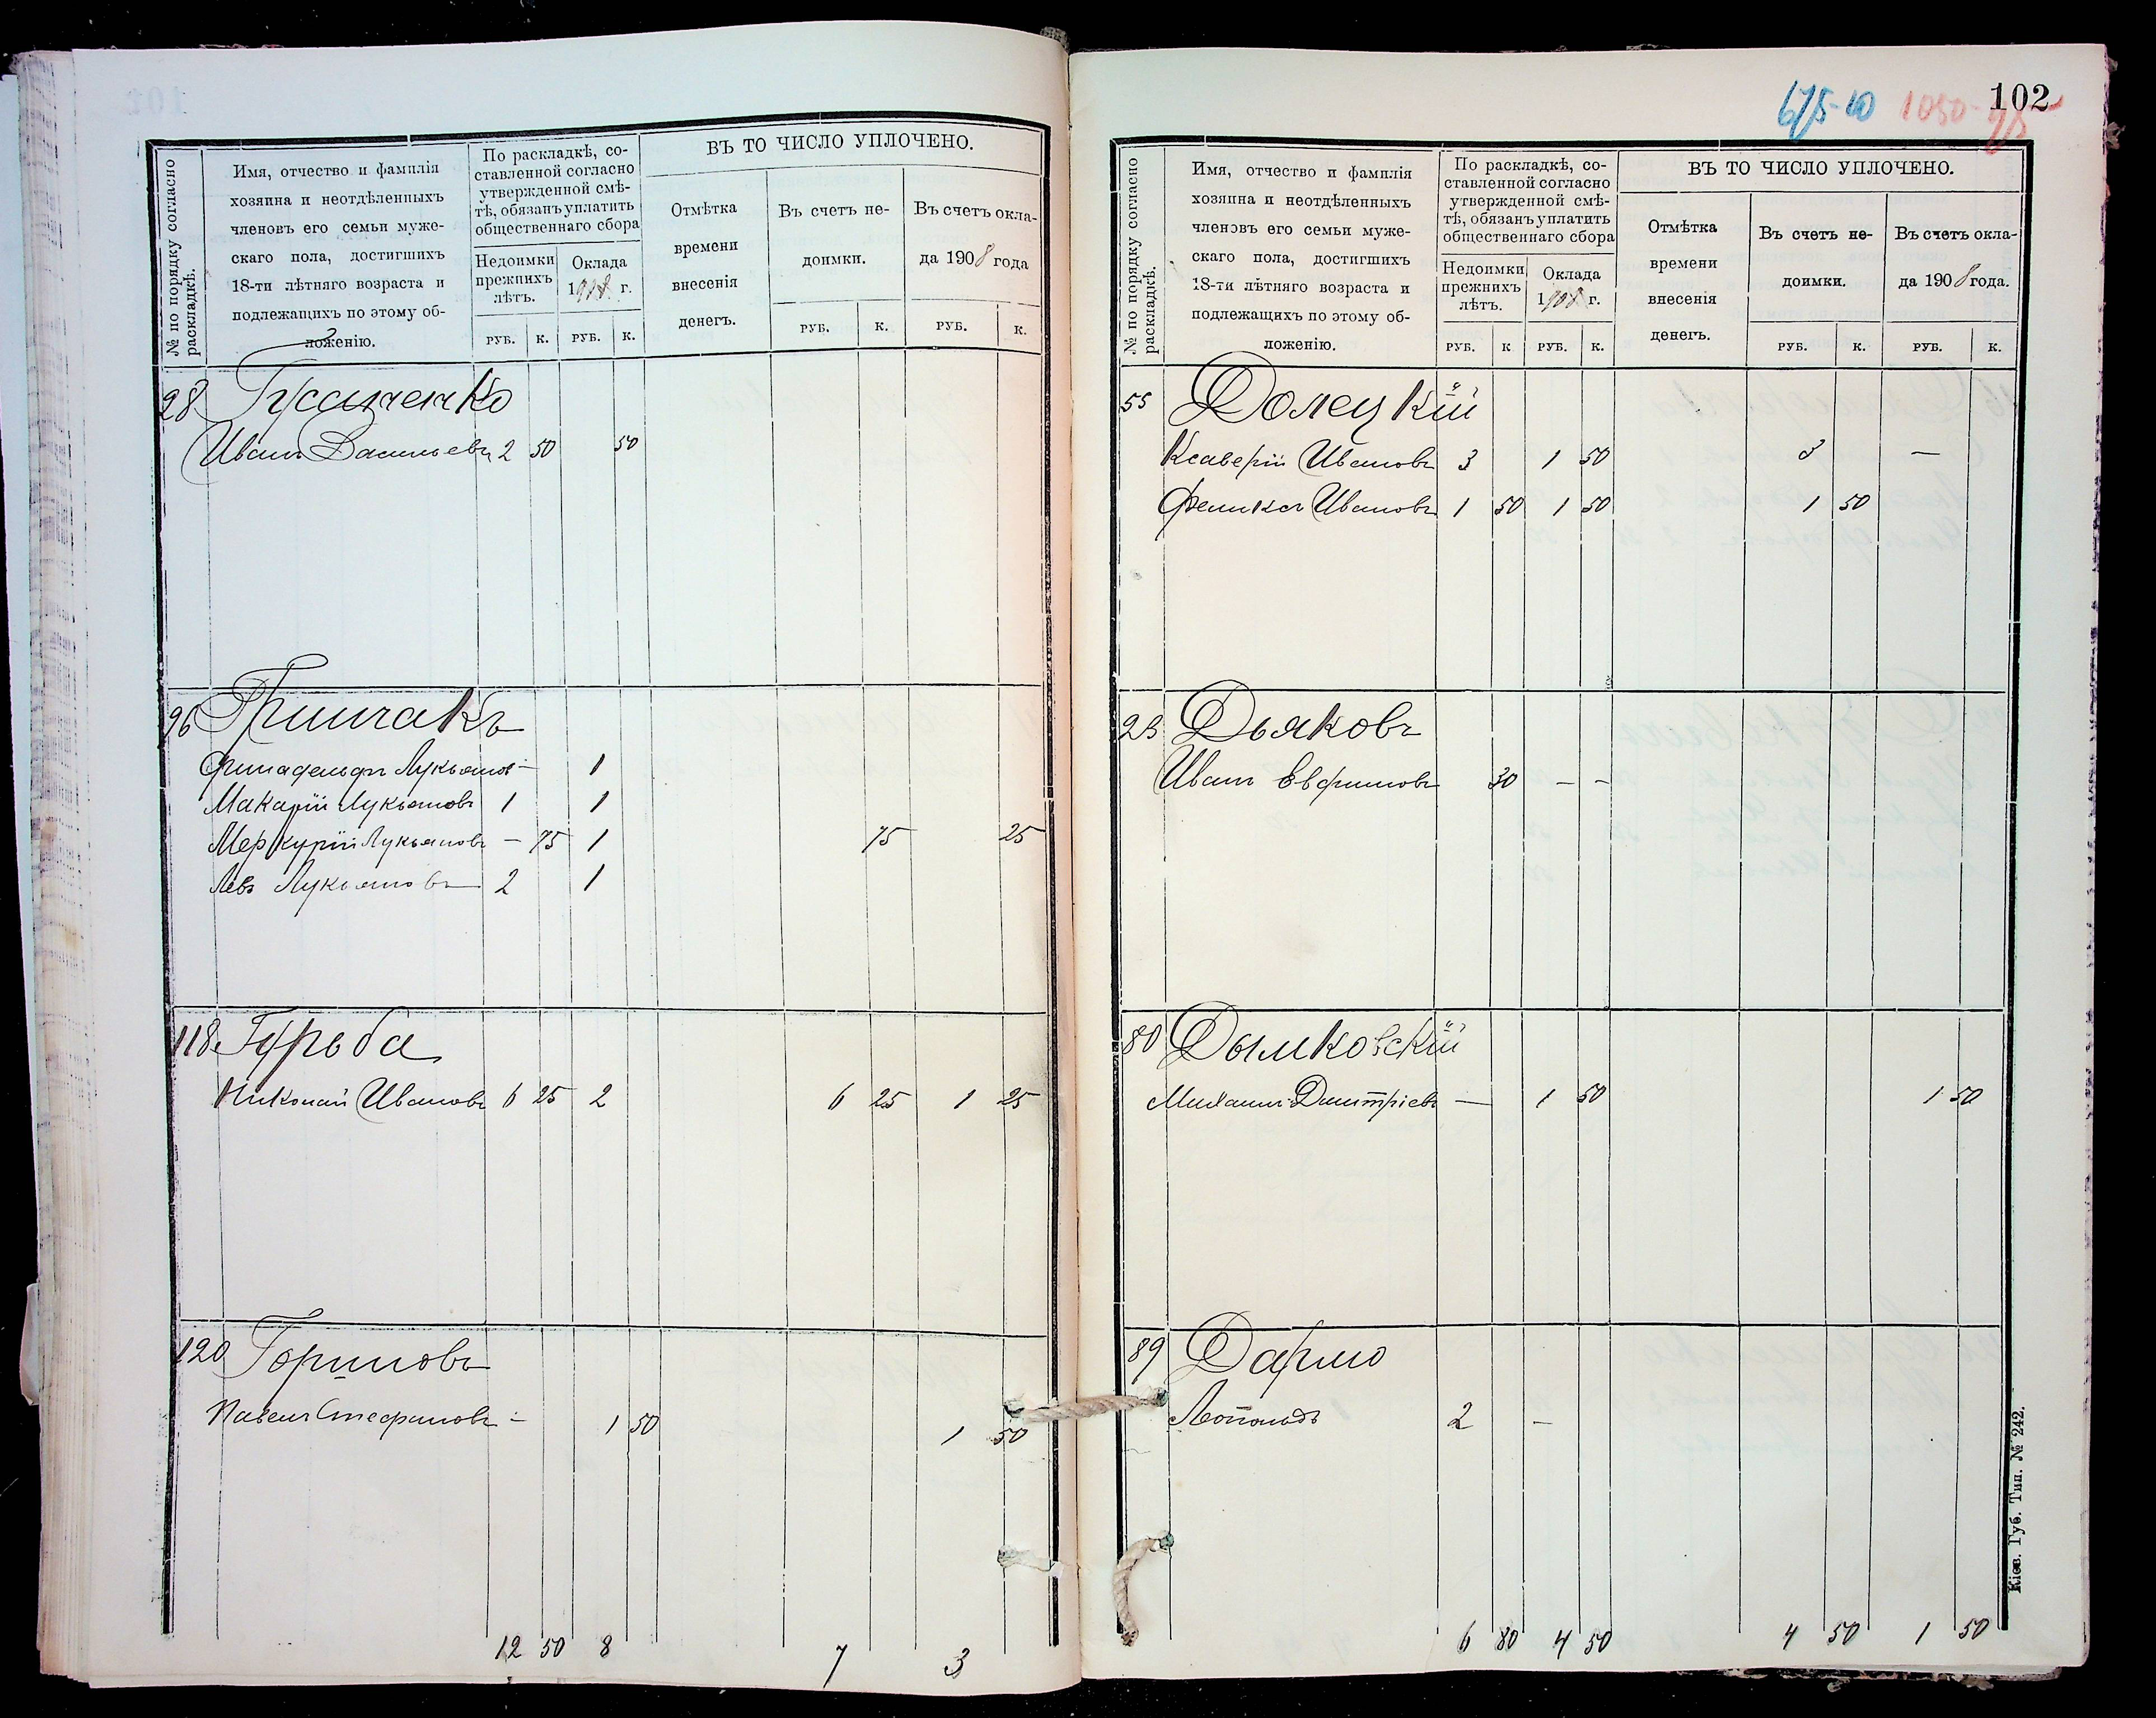 № по порядку согласно раскладкѣ.
Имя, отчество и фамилія
хозяина и неотдѣленныхъ
членовъ его семьи муже-
скаго пола, достигшихъ
18-ти лѣтняго возраста и
подлежащихъ по этому об-
ложенію.
По раскладкѣ, со-
ставленной согласно
утвержденной смѣ-
тѣ, обязанъ уплатить
общественнаго сбора
Недоимки
прежнихъ
лѣтъ.
Оклада
1908 г.
РУБ. К. РУБ. К.
ВЪ ТО ЧИСЛО УПЛОЧЕНО.
Отмѣтка
времени
внесенія
денегъ.
Въ счетъ не-
доимки.
Въ счетъ окла-
да 1908 года
РУБ. К. РУБ. К.
28
Иванъ Васильевъ 2 50 50
96 Гринчакъ
Филадельфъ Лукьянов - 1
Макарій Лукьяновъ 1 1
Меркурій Лукьяновъ - 75 1 75 25
Левъ Лукьяновъ 2 1
118 Гурьба
Николай Ивановъ 6 25 2 6 25 1 25
120 Горшковъ
Павелъ Стефановъ - 1 50 1 50
12 50 8 7 3
675-10 1050-
102
№ по порядку согласно раскладкѣ.
Имя, отчество и фамилія
хозяина и неотдѣленныхъ
членовъ его семьи муже-
скаго пола, достигшихъ
18-ти лѣтняго возраста и
подлежащихъ по этому об-
ложенію.
По раскладкѣ, со-
ставленной согласно
утвержденной смѣ-
тѣ, обязанъ уплатить
общественнаго сбора
Недоимки
прежнихъ
лѣтъ.
Оклада
1908 г.
РУБ. К РУБ. К.
ВЪ ТО ЧИСЛО УПЛОЧЕНО.
Отмѣтка
времени
внесенія
денегъ.
Въ счетъ не-
доимки.
Въ счетъ окла-
да 1908 года.
РУБ. К. РУБ. К.
55 Долецкій
Ксаверій Ивановъ 3 1 50 3 —
Феликсъ Ивановъ 1 50 1 50 1 50
23 Дьяковъ
Иванъ Евфимовъ 30 - -
80 Дымковскій
Михаилъ Дмитріевъ — 1 50 1 50
89
Леопольдъ 2 -
6 80 4 50 4 50 1 50
Кіев. Губ. Тип. № 242.